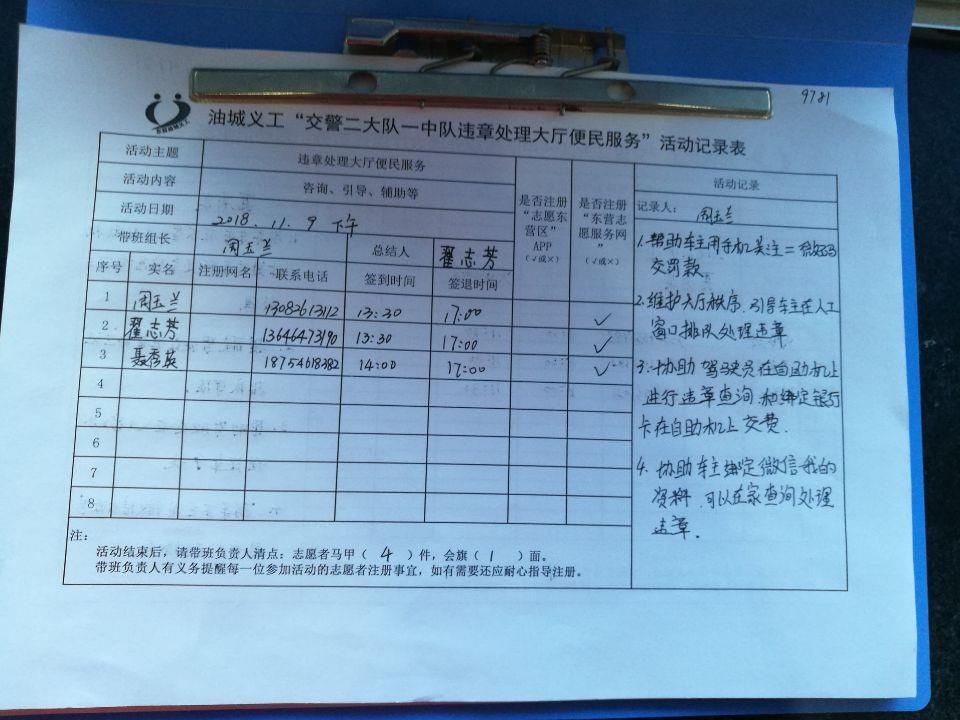 9781
油城义工“交警二大队一中队违章处理大厅便民服务”活动记录表
活动主题 违章处理大厅便民服务
活动内容 咨询、引导、辅助等
活动日期 2018.11.9 下午
带班组长 周玉兰 总结人 翟志芳
是否注册“志愿东营区”APP（√或×）
是否注册“东营志愿服务网”（√或×）
序号 实名 注册网名 联系电话 签到时间 签退时间
1 周玉兰 13082613112 13:30 17:00 ✓
2 翟志芳 13646473190 13:30 17:00 ✓
3 聂秀英 18754618382 14:00 17:00 ✓
4
5
6
7
8
注：
活动结束后，请带班负责人清点：志愿者马甲（ 4 ）件，会旗（ 1 ）面。
带班负责人有义务提醒每一位参加活动的志愿者注册事宜，如有需要还应耐心指导注册。
活动记录
记录人： 周玉兰
1. 帮助车主用手机关注二维码
交罚款.
2. 维护大厅秩序, 引导车主在人工
窗口排队处理违章
3. 协助驾驶员在自助机上
进行违章查询, 和绑定银行
卡在自助机上交费.
4. 协助车主绑定微信我的
资料, 可以在家查询处理
违章.